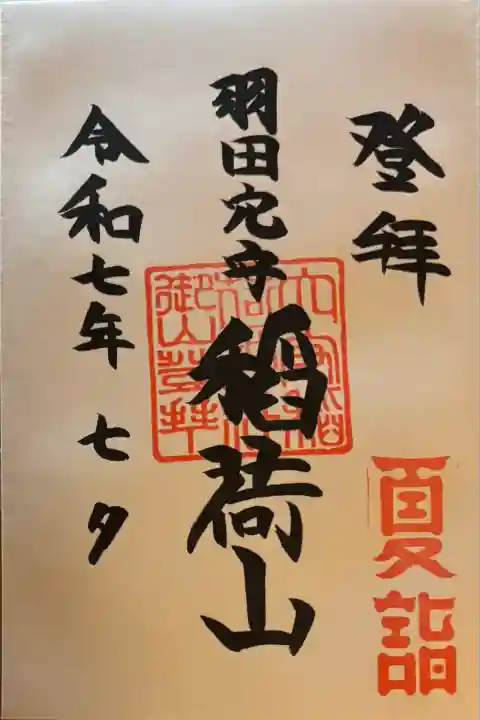 登拜
夏詣
羽田穴守
稲荷山
令和七年 七夕